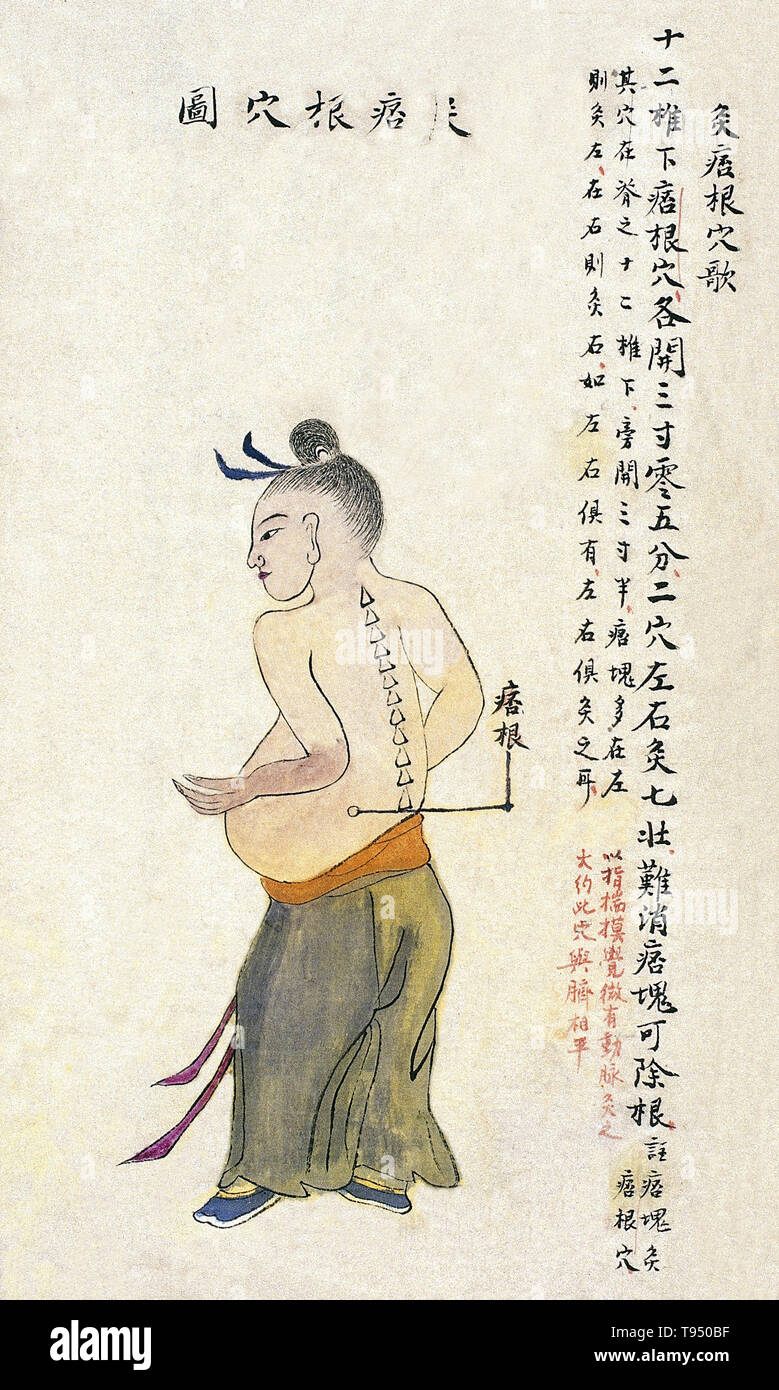 灸痞根穴歌
十二椎下痞根穴各開三寸零五分二穴左右灸七壯難消痞塊可除根註痞塊灸
痞根穴
其穴在脊之十二椎下旁開三寸半痞塊多在左
則灸左在右則灸右如左右俱有左右俱灸之耳
以指揣摸覺微有動脈灸之
大約此穴與臍相平
灸痞根穴圖
痞根
alamy
alamy
alamy
alamy
Image ID: T950BF
www.alamy.com